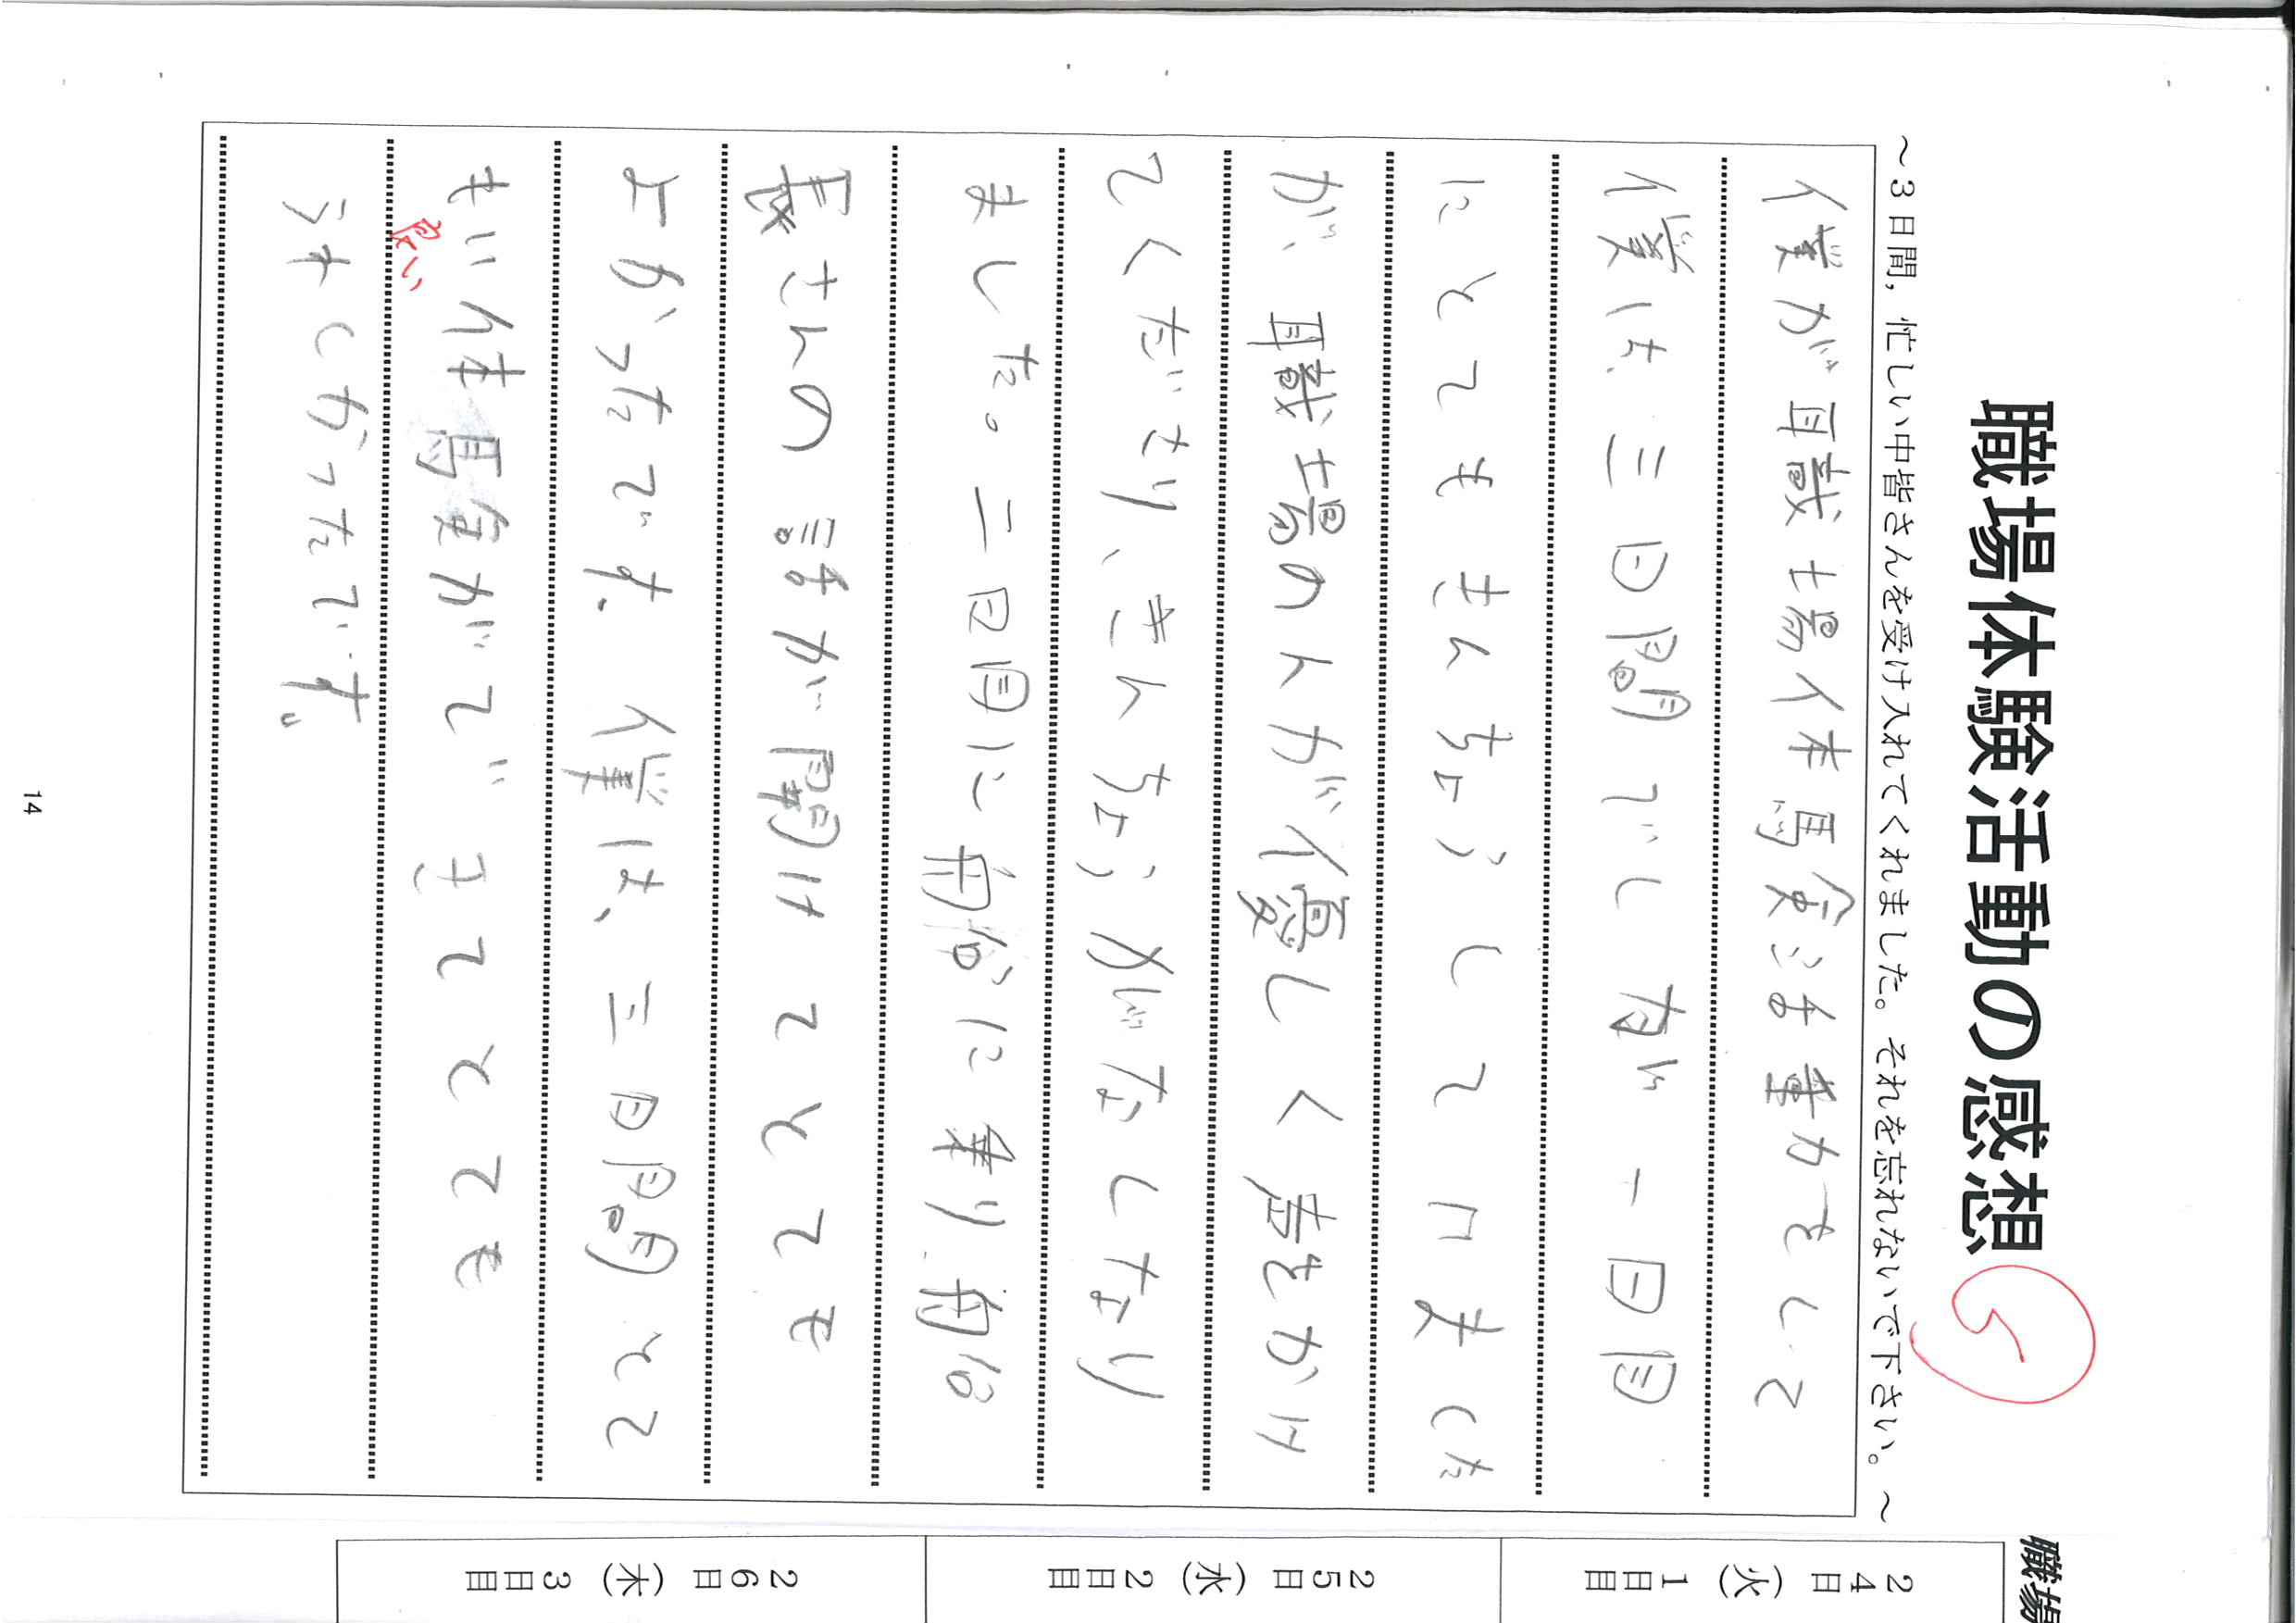 職場体験活動の感想
～3日間，忙しい中皆さんを受け入れてくれました。それを忘れないで下さい。～
僕が職場体験活動をして
僕は三日間でしたが一日目
にとてもきんちょうして口又した
が、職場の人が優しく声をかけ
てくださり、きんちょうがなしなり
ました。二日目に船に乗り船
長さんの話が聞けてとても
よかったです。僕は、三日間とて
もいい体験ができてとても
良い
うれしかったです。
14
職場
24日（火）1日目
25日（水）2日目
26日（木）3日目